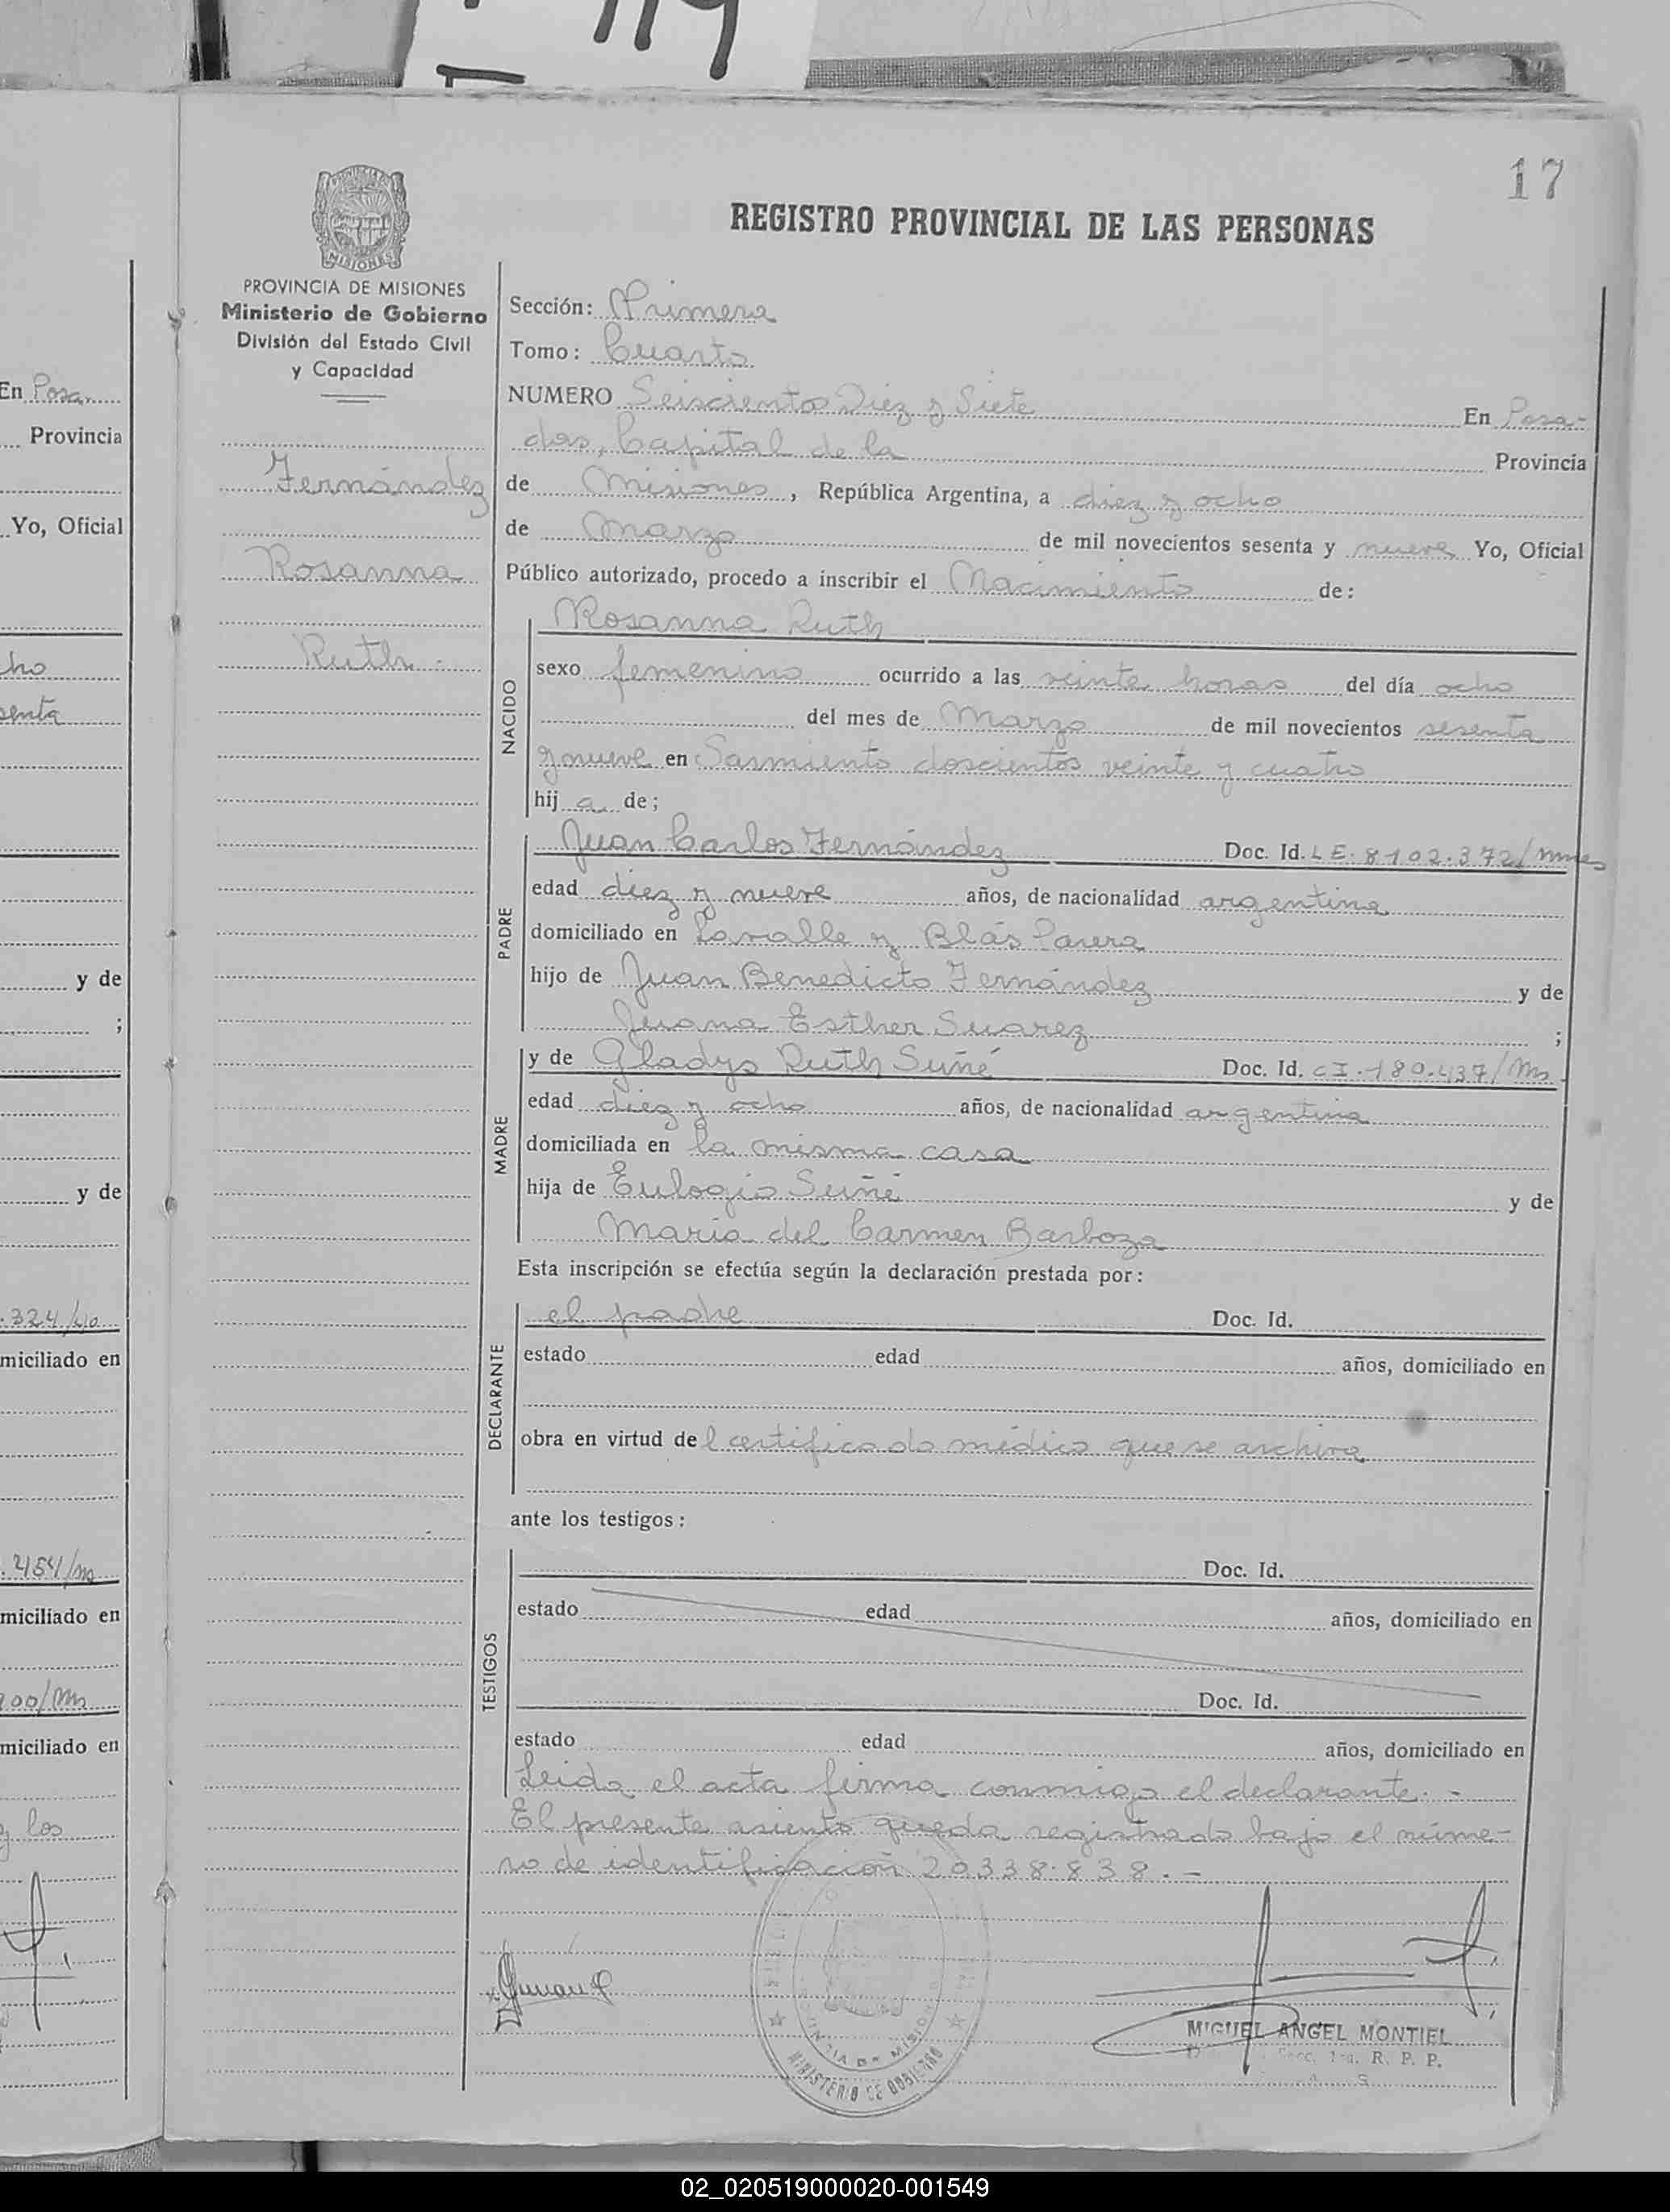 17
REGISTRO PROVINCIAL DE LAS PERSONAS
MISIONES
PROVINCIA DE MISIONES
Ministerio de Gobierno
División del Estado Civil
y Capacidad
Fernández
Rosanna
Ruth.-
Sección: Primera
Tomo: Cuarto
NUMERO Seiscientos Diez y Siete En Posa-
das, Capital de la Provincia
de Misiones, República Argentina, a diez y ocho
de Marzo de mil novecientos sesenta y nueve Yo, Oficial
Público autorizado, procedo a inscribir el Nacimiento de:
NACIDO
Rosanna Ruth
sexo femenino ocurrido a las veinte horas del día ocho
del mes de Marzo de mil novecientos sesenta
y nueve en Sarmiento doscientos veinte y cuatro
hij a de;
PADRE
Juan Carlos Fernández Doc. Id. L E. 8102.372/Mnes
edad diez y nueve años, de nacionalidad argentina
domiciliado en Lavalle y Blás Parera
hijo de Juan Benedicto Fernández y de
Juana Esther Suarez ;
MADRE
y de Gladys Ruth Suñé Doc. Id. C I. 180.437/Ms
edad diez y ocho años, de nacionalidad argentina
domiciliada en la misma casa
hija de Eulogio Suñé y de
María del Carmen Barboza
Esta inscripción se efectúa según la declaración prestada por:
DECLARANTE
el padre Doc. Id.
estado edad años, domiciliado en
obra en virtud del certificado médico que se archiva
ante los testigos:
TESTIGOS
Doc. Id.
estado edad años, domiciliado en
Doc. Id.
estado edad años, domiciliado en
Leida el acta firma conmigo el declarante.-
El presente asiento queda registrado bajo el núme-
ro de identificación 20338.838.-
MINISTERIO DE GOBIERNO
MIGUEL ANGEL MONTIEL
R. P. P.
En Posa
Provincia
Yo, Oficial
cho
senta
y de
;
y de
.324/40
miciliado en
.454/m
miciliado en
900/Mn
miciliado en
y los
02_020519000020-001549